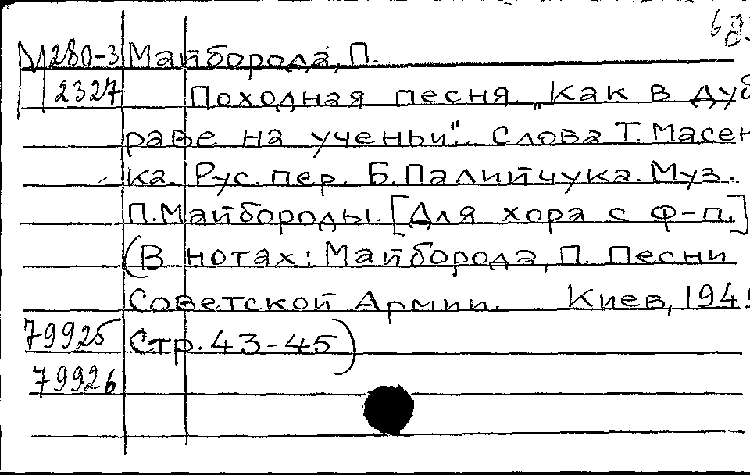 Д 280-3 Майборода, П.
2327 Походная песня „Как в дуб
раве на ученьи". Слова Т. Масен
ка. Рус. пер. Б. Палийчука. Муз.
П. Майбороды. [Для хора с ф-п.]
(В нотах: Майборода, П. Песни
Советской Армии. Киев, 194
79925 Стр. 43-45)
79926